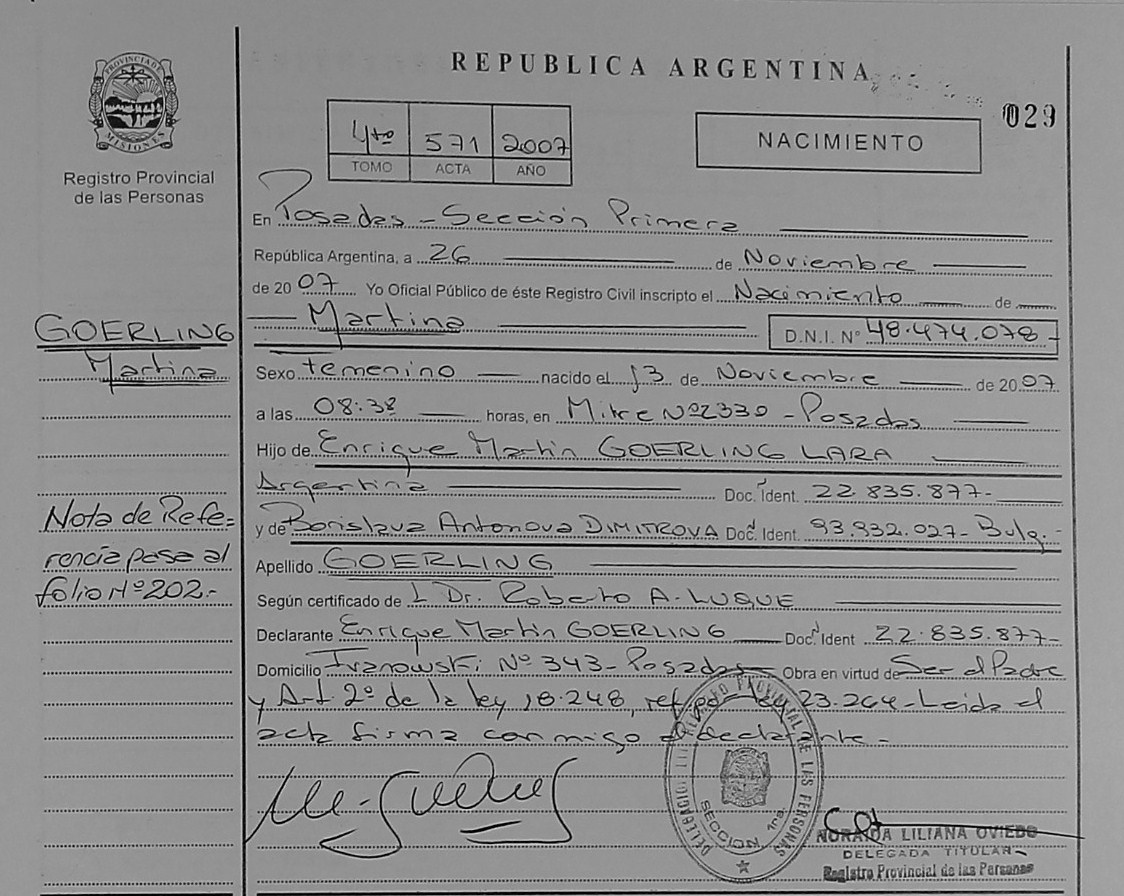 REPUBLICA ARGENTINA
029
PROVINCIA DE MISIONES
Registro Provincial
de las Personas
4to 571 2007
TOMO ACTA AÑO
NACIMIENTO
En Posadas - Sección Primera
República Argentina, a 26 de Noviembre
de 2007 Yo Oficial Público de éste Registro Civil inscripto el Nacimiento de
Martina D.N.I. N° 48.474.078-
GOERLING
Martina
Sexo femenino nacido el 13 de Noviembre de 2007
a las 08:38 horas, en Mitre Nº2330 - Posadas
Hijo de Enrique Martin GOERLING LARA
Argentina Doc. Ident. 22.835.877-
y de Borislava Antonova DIMITROVA Doc. Ident. 93.932.027- Bulg.
Nota de Refe=
rencia pasa al
folio Nº202.-
Apellido GOERLING
Según certificado de L Dr. Roberto A. LUQUE
Declarante Enrique Martin GOERLING Doc. Ident 22.835.877-
Domicilio Ivanowski Nº 343- Posadas Obra en virtud de Ser el Padre
y Art. 2º de la ley 18.248, ref. por 23.264-Leida el
acta firma conmigo el declarante.-
DELEGACION DEL REGISTRO PROVINCIAL DE LAS PERSONAS
SECCION 1ra.
NORAIDA LILIANA OVIEDO
DELEGADA TITULAR
Registro Provincial de las Personas